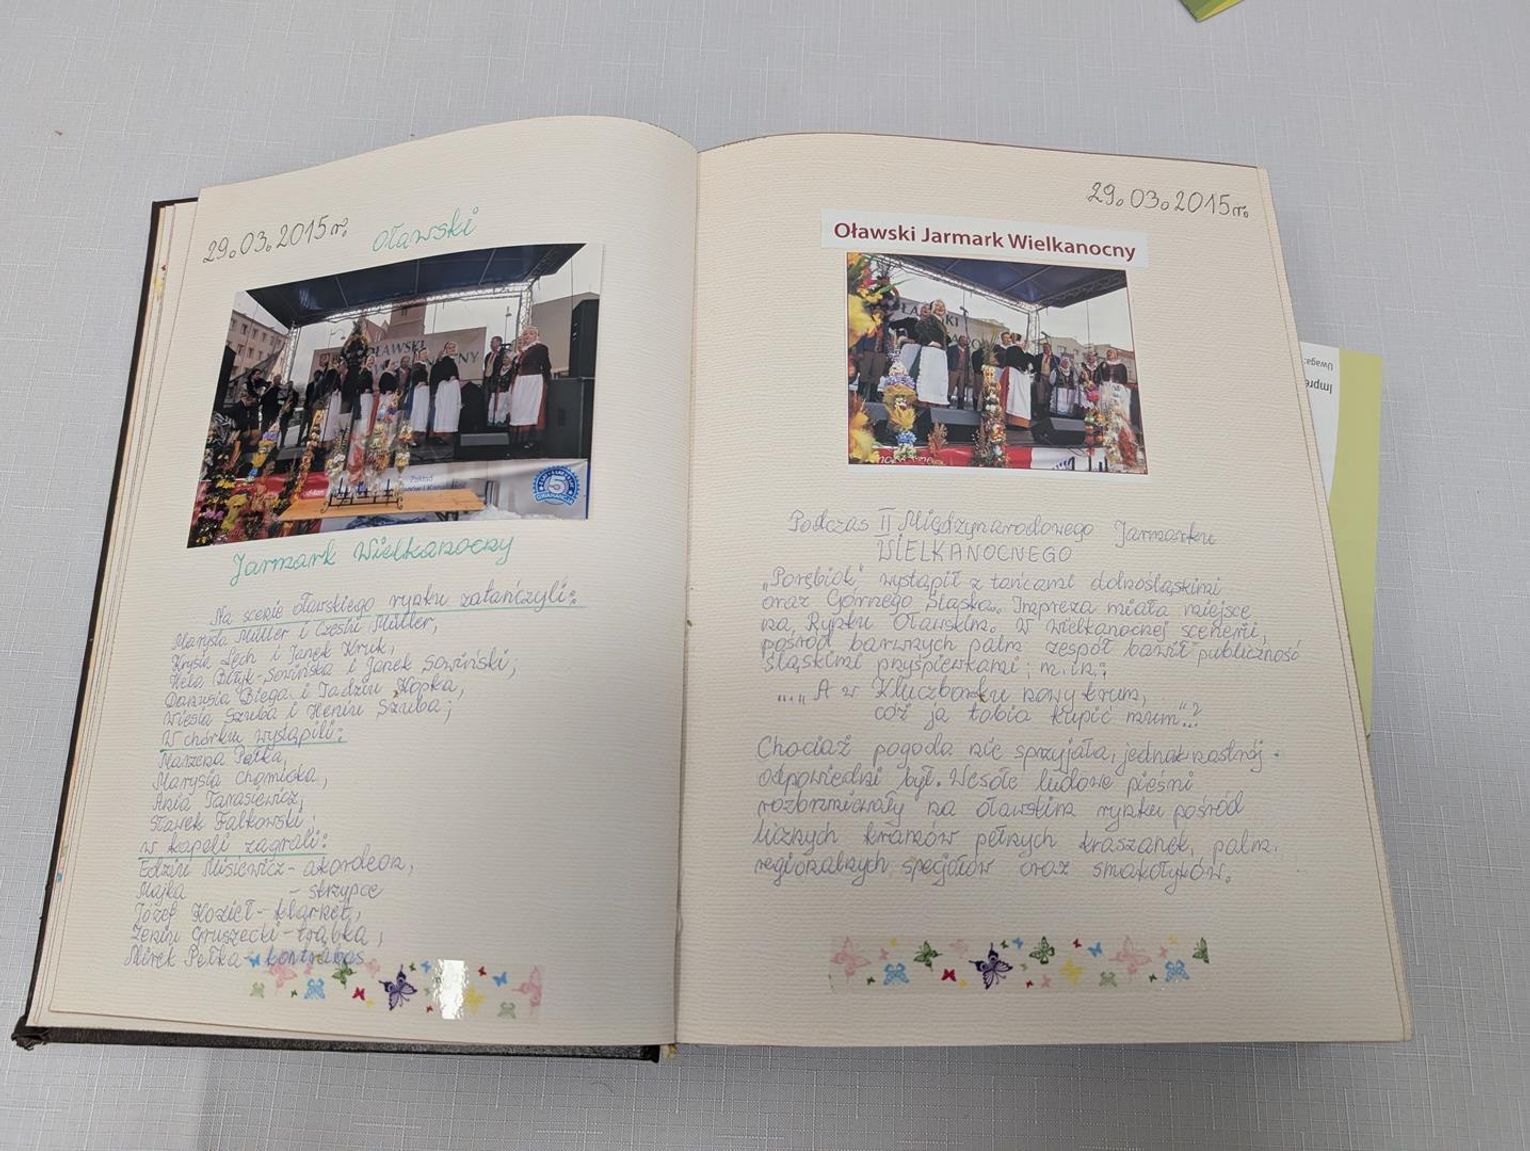 29.03.2015r.
Oławski
OŁAWSKI
Jarmark Wielkanocny
Na scenie oławskiego rynku zatańczyli:
Marysia Müller i Czesiu Müller,
Krysia Lech i Janek Kruk,
Hela Bityk-Sowińska i Janek Sowiński;
Danusia Biega i Tadziu Kopka,
Wiesia Szruba i Heniu Szruba;
W chórku wystąpili:
Marzena Pełka,
Marysia Chomicka,
Ania Tarasiewicz,
Sławek Falkowski;
w kapeli zagrali:
Edziu Misiewicz - akordeon,
Majka - skrzypce
Józef Kozieł - klarnet,
Zeniu Gruszecki - trąbka,
Mirek Pełka - kontrabas
29.03.2015r.
Oławski Jarmark Wielkanocny
Podczas II Międzynarodowego Jarmarku
WIELKANOCNEGO
„Porębiok" wystąpił z tańcami dolnośląskimi
oraz Górnego Śląska. Impreza miała miejsce
na Rynku Oławskim. W wielkanocnej scenerii,
pośród barwnych palm zespół bawił publiczność
śląskimi przyśpiewkami; m.in.:
..." A w Kluczborku nowy krum,
cóż ja tobia kupić mum"..?
Chociaż pogoda nie sprzyjała, jednak nastrój
odpowiedni był. Wesołe ludowe pieśni
rozbrzmiewały na oławskim rynku pośród
licznych kramów pełnych kraszanek, palm,
regionalnych specjałów oraz smakołyków.
Uwaga:
Impre